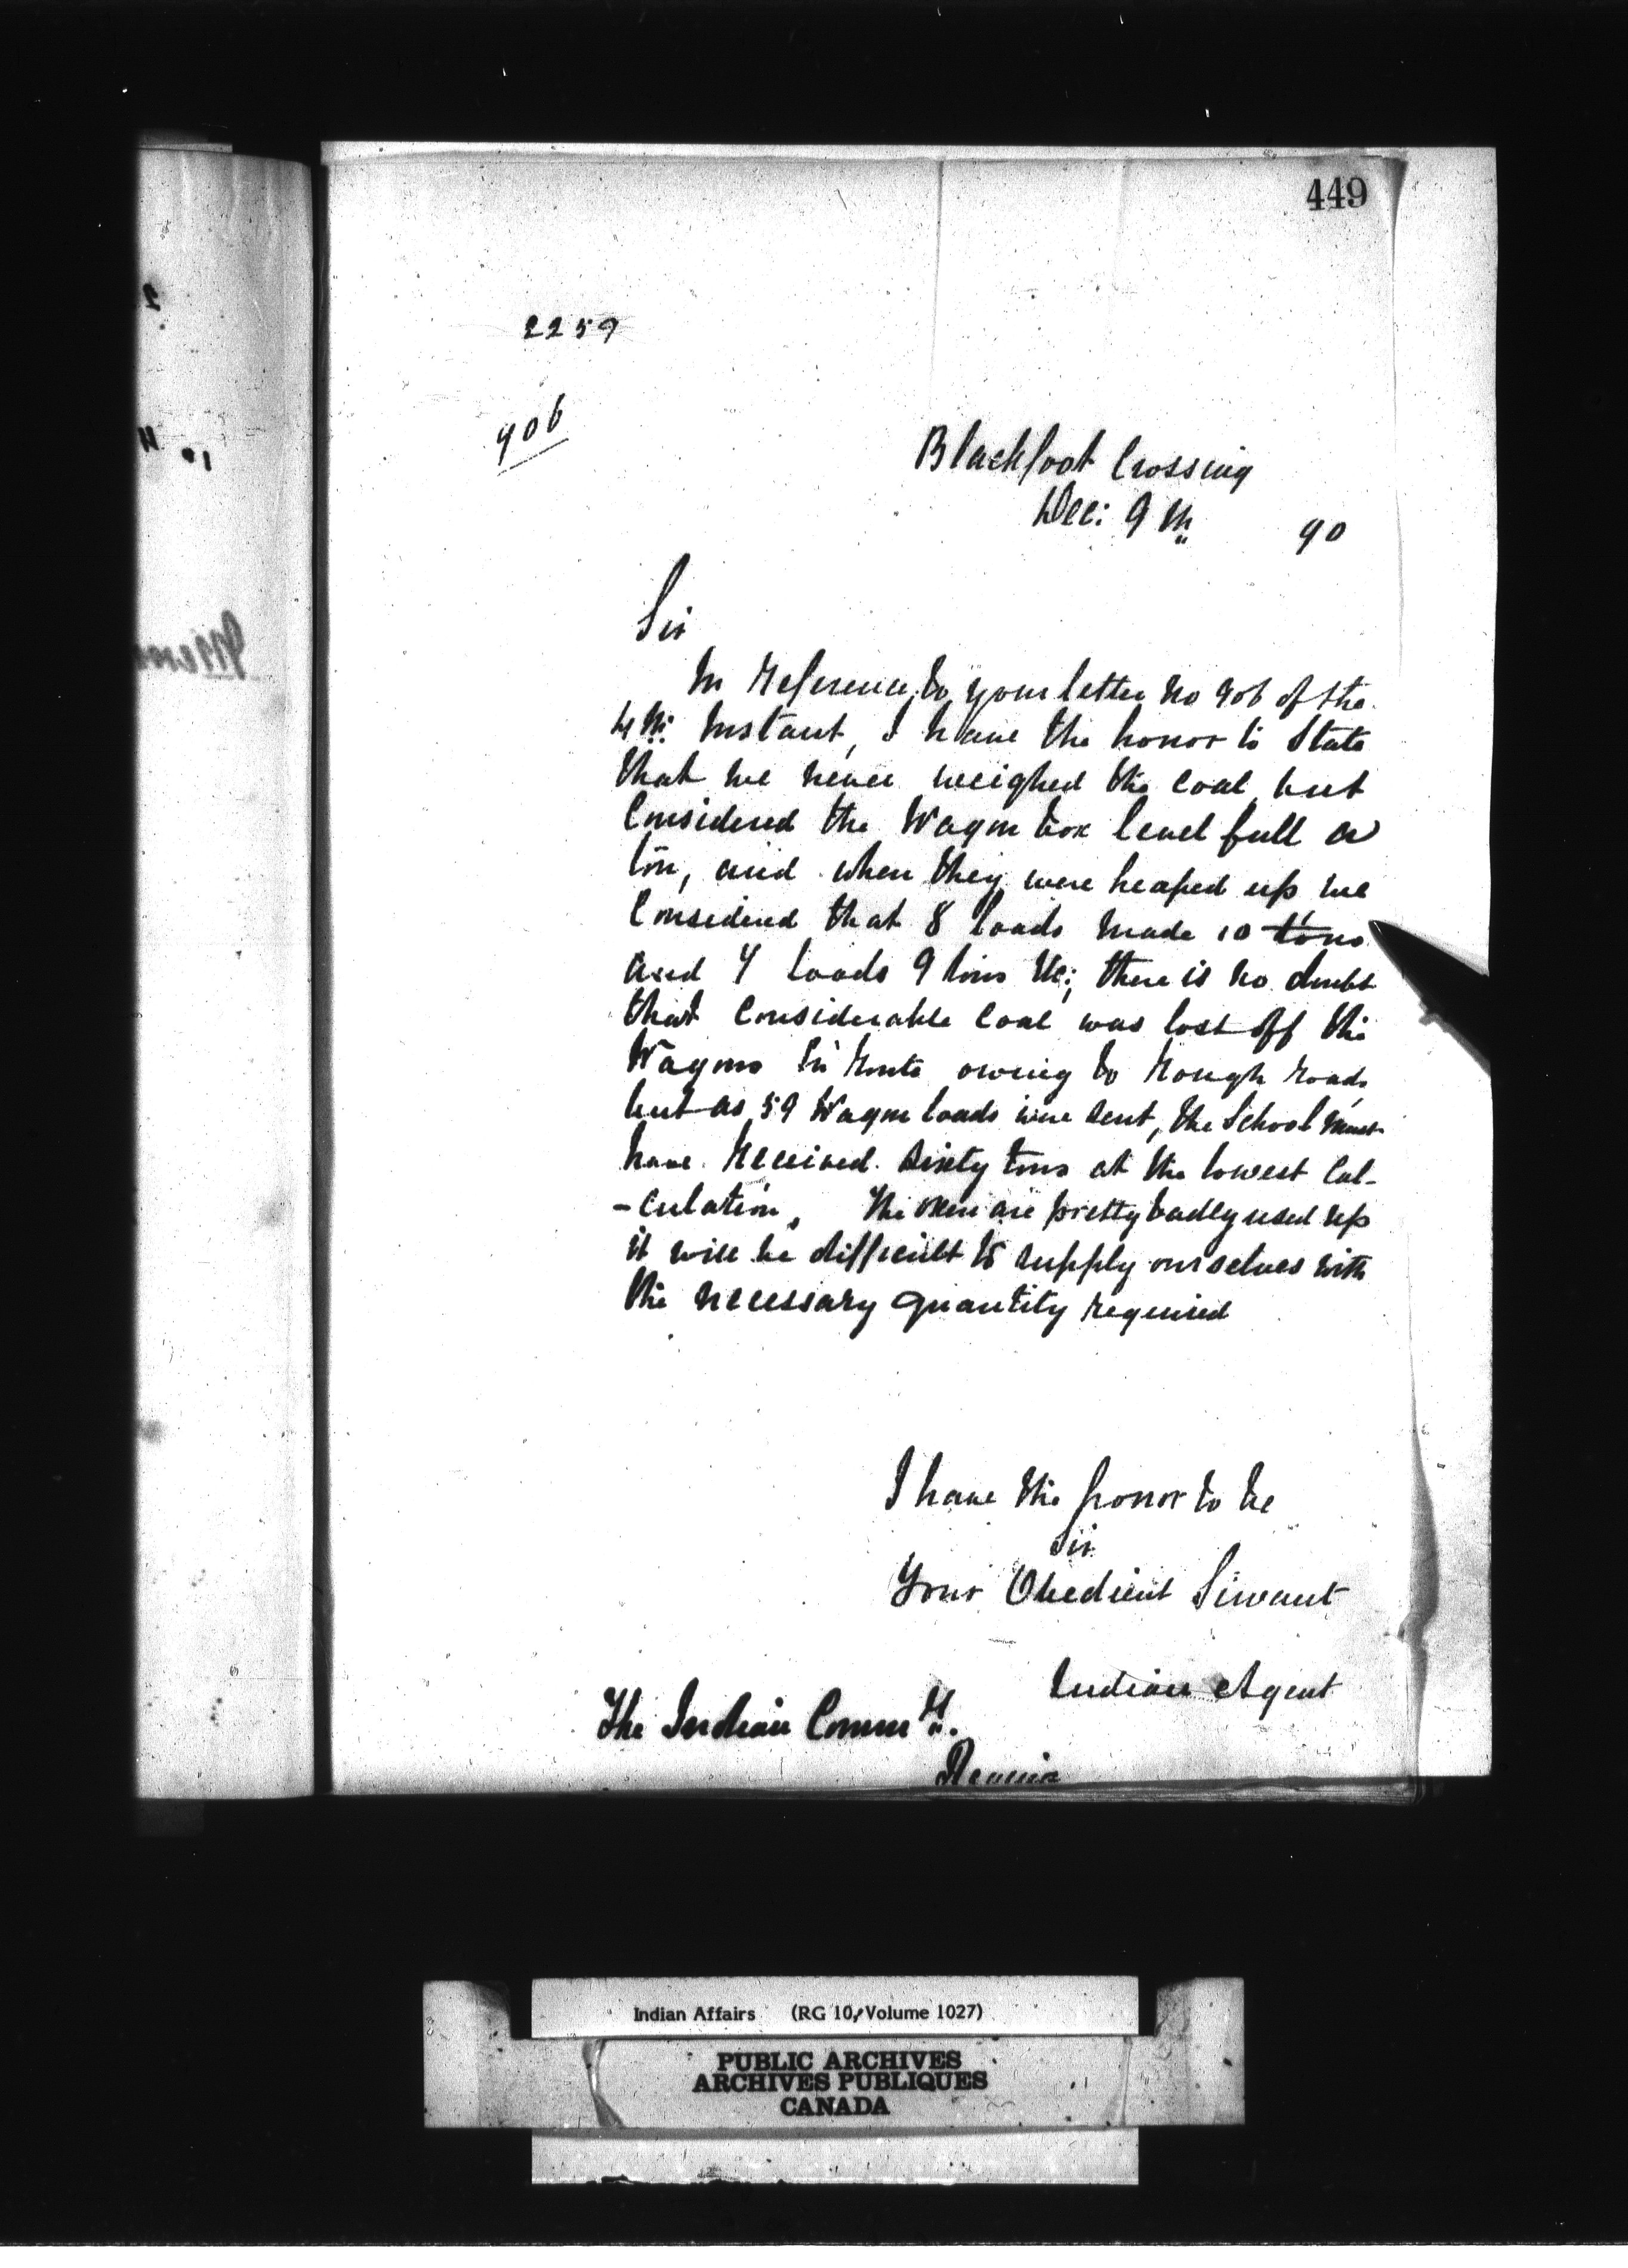 449
2259
906
Blackfoot Crossing
Dec: 9th 90
Sir
In reference to your letter no 906 of the
4th Instant, I have the honor to State
that we never weighed the coal but
Considered the Wagon box level full a
ton, and when they were heaped up we
Considered that 8 loads made 10 tons
and 7 loads 9 tons &c; there is no doubt
that Considerable Coal was lost off the
Wagons en route owing to rough roads
but as 59 Wagon loads were sent, the School must
have received sixty tons at the lowest Cal-
-culation. The oxen are pretty badly used up
it will be difficult to supply ourselves with
the necessary quantity required
I have the honor to be
Sir
Your Obedient Servant
Indian Agent
The Indian Commr.
Regina
Indian Affairs (RG 10, Volume 1027)
PUBLIC ARCHIVES
ARCHIVES PUBLIQUES
CANADA